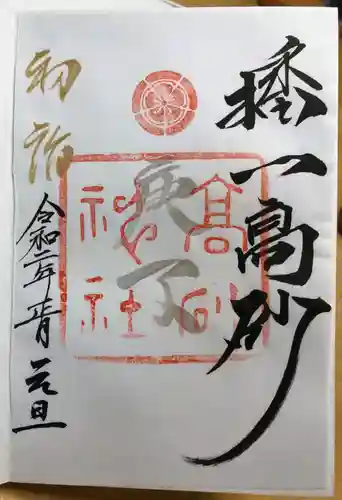 播一高砂
高砂
神社
庚子
初詣
令和二年正月元旦